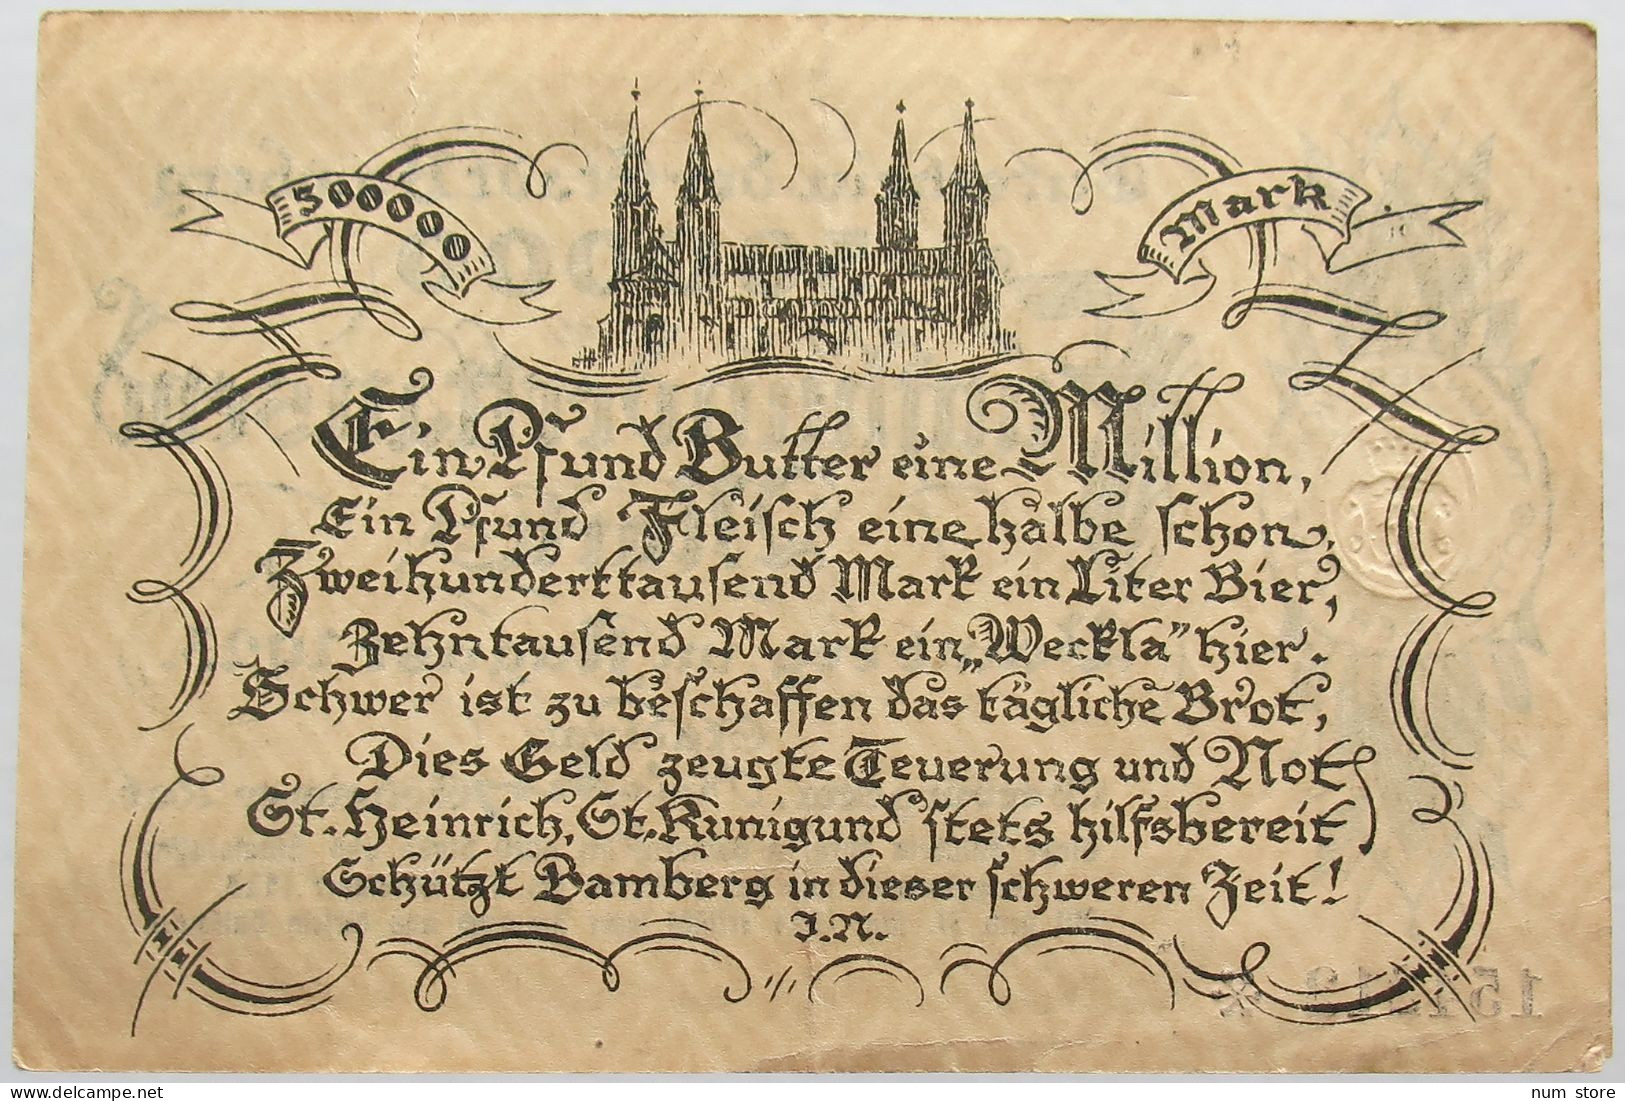 500000
Mark
Ein Pfund Butter eine Million,
Ein Pfund Fleisch eine halbe schon,
Zweihunderttausend Mark ein Liter Bier,
Zehntausend Mark ein „Weckla" hier.
Schwer ist zu beschaffen das tägliche Brot,
Dies Geld zeugte Teuerung und Not
St. Heinrich, St. Kunigund stets hilfsbereit
Schützt Bamberg in dieser schweren Zeit!
J.N.
num store